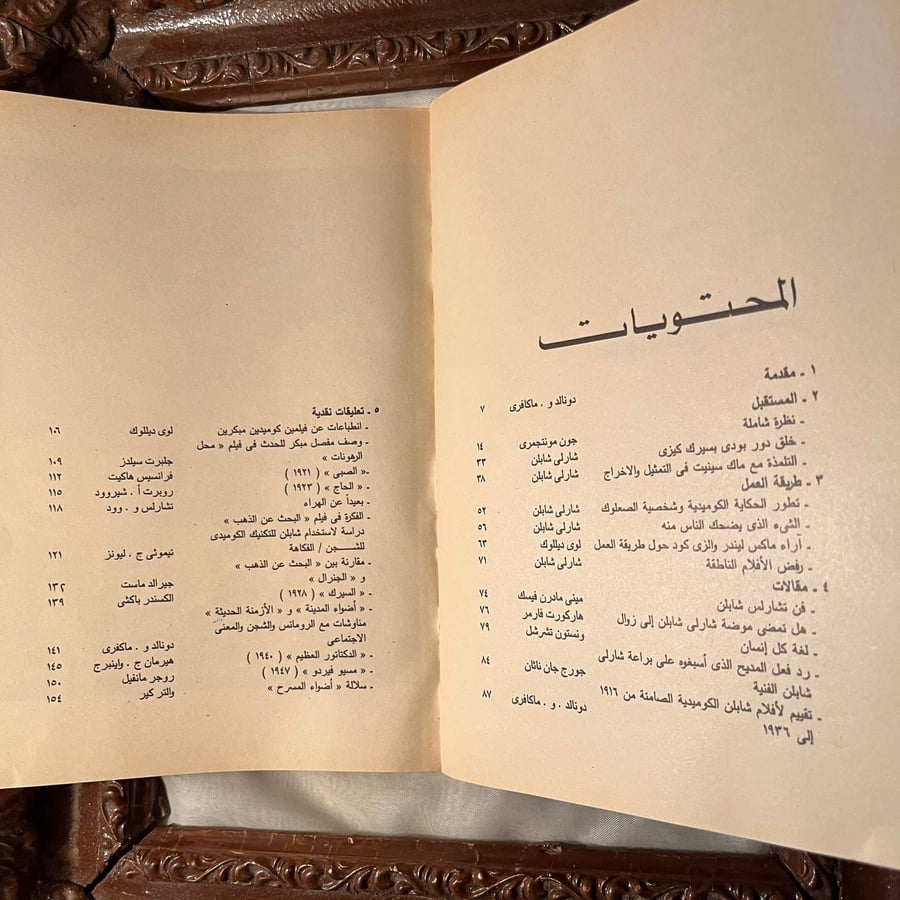 المحتويات
١ - مقدمة
٢ - المستقبل دونالد و . ماكافرى ٧
- نظرة شاملة
- خلق دور بودى بسيرك كيزى جون مونتجمرى ١٤
- التلمذة مع ماك سينيت فى التمثيل والاخراج شارلى شابلن ٣٣
٣ - طريقة العمل شارلى شابلن ٣٨
- تطور الحكاية الكوميدية وشخصية الصعلوك شارلى شابلن ٥٢
- الشىء الذى يضحك الناس منه شارلى شابلن ٥٦
- آراء ماكس ليندر والزى كود حول طريقة العمل لوى ديللوك ٦٣
- رفض الأفلام الناطقة شارلى شابلن ٧١
٤ - مقالات
- فن تشارلس شابلن مينى مادرن فيسك ٧٤
- هل تمضى موضة شارلى شابلن إلى زوال هاركورت فارمر ٧٦
- لغة كل إنسان ونستون تشرشل ٧٩
- رد فعل المديح الذى أسبغوه على براعة شارلى
شابلن الفنية جورج جان ناثان ٨٤
- تقييم لأفلام شابلن الكوميدية الصامتة من ١٩١٦
إلى ١٩٣٦ دونالد . و . ماكافرى ٨٧
٥ - تعليقات نقدية
- انطباعات عن فيلمين كوميدين مبكرين لوى ديللوك ١٠٦
- وصف مفصل مبكر للحدث فى فيلم « محل
الرهونات » جلبرت سيلدز ١٠٩
- « الصبى » ( ١٩٢١ ) فرانسيس هاكيت ١١٢
- « الحاج » ( ١٩٢٣ ) روبرت أ . شيروود ١١٥
- بعيداً عن الهراء تشارلس و . وود ١١٨
- الفكرة فى فيلم « البحث عن الذهب »
دراسة لاستخدام شابلن للتكنيك الكوميدى
للشجن / الفكاهة تيموثى ج . ليونز ١٢١
- مقارنة بين « البحث عن الذهب »
و « الجنرال » جيرالد ماست ١٣٢
- « السيرك » ( ١٩٢٨ ) الكسندر باكشى ١٣٩
- « أضواء المدينة » و « الأزمنة الحديثة »
مناوشات مع الرومانس والشجن والمعنى
الاجتماعى دونالد و . ماكفرى ١٤١
- « الدكتاتور العظيم » ( ١٩٤٠ ) هيرمان ج . واينبرج ١٤٥
- « مسيو فيردو » ( ١٩٤٧ ) روجر مانفيل ١٥٠
- سلالة « أضواء المسرح » والتر كير ١٥٤